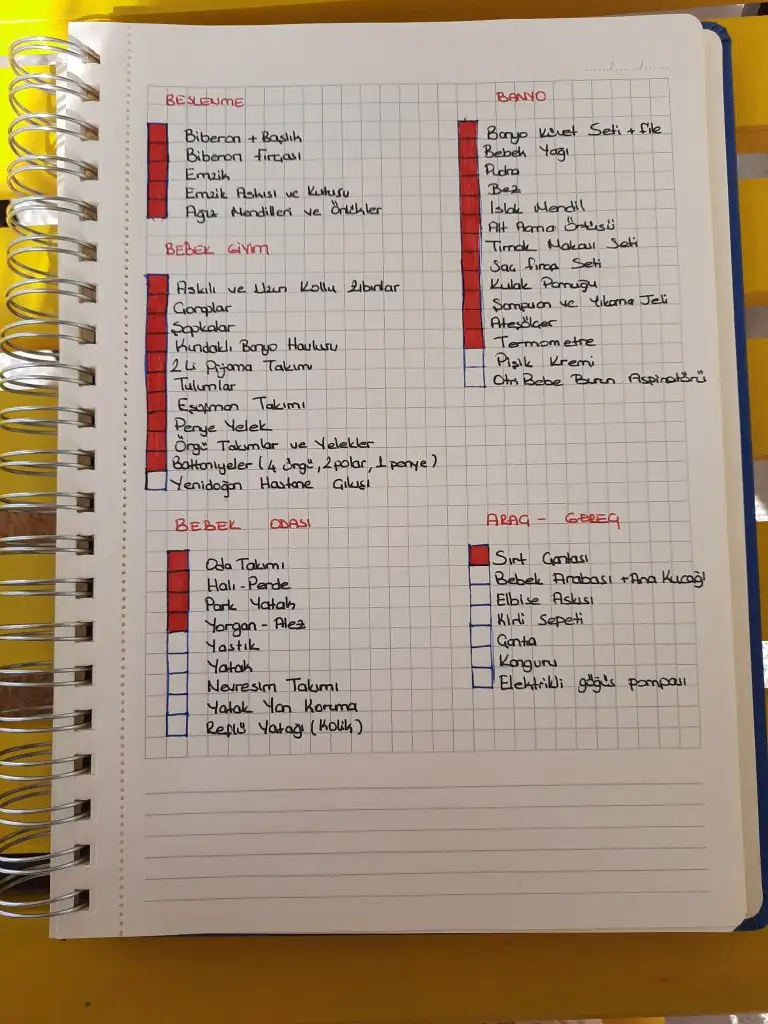 BESLENME
Biberon + Başlık
Biberon fırçası
Emzik
Emzik Askısı ve Kutusu
Ağız Mendilleri ve Önlükler
BEBEK GİYİM
Askılı ve Uzun Kollu Zıbınlar
Çoraplar
Şapkalar
Kundaklı Banyo Havlusu
2 Li Pijama Takımı
Tulumlar
Eşofman Takımı
Penye Yelek
Örgü Takımlar ve Yelekler
Battaniyeler (4 örgü, 2 polar, 1 penye)
Yenidoğan Hastane Çıkışı
BEBEK ODASI
Oda Takımı
Halı - Perde
Park Yatak
Yorgan - Alez
Yastık
Yatak
Nevresim Takımı
Yatak Yan Koruma
Reflü Yatağı (Kolik)
BANYO
Banyo Küvet Seti + file
Bebek Yağı
Pudra
Bez
Islak Mendil
Alt Açma Örtüsü
Tırnak Makası Seti
Saç fırça Seti
Kulak Pamuğu
Şampuan ve Yıkama Jeli
Ateşölçer
Termometre
Pişik Kremi
Otri Bebe Burun Aspiratörü
ARAÇ - GEREÇ
Sırt Çantası
Bebek Arabası + Ana Kucağı
Elbise Askısı
Kirli Sepeti
Çanta
Kanguru
Elektrikli göğüs pompası